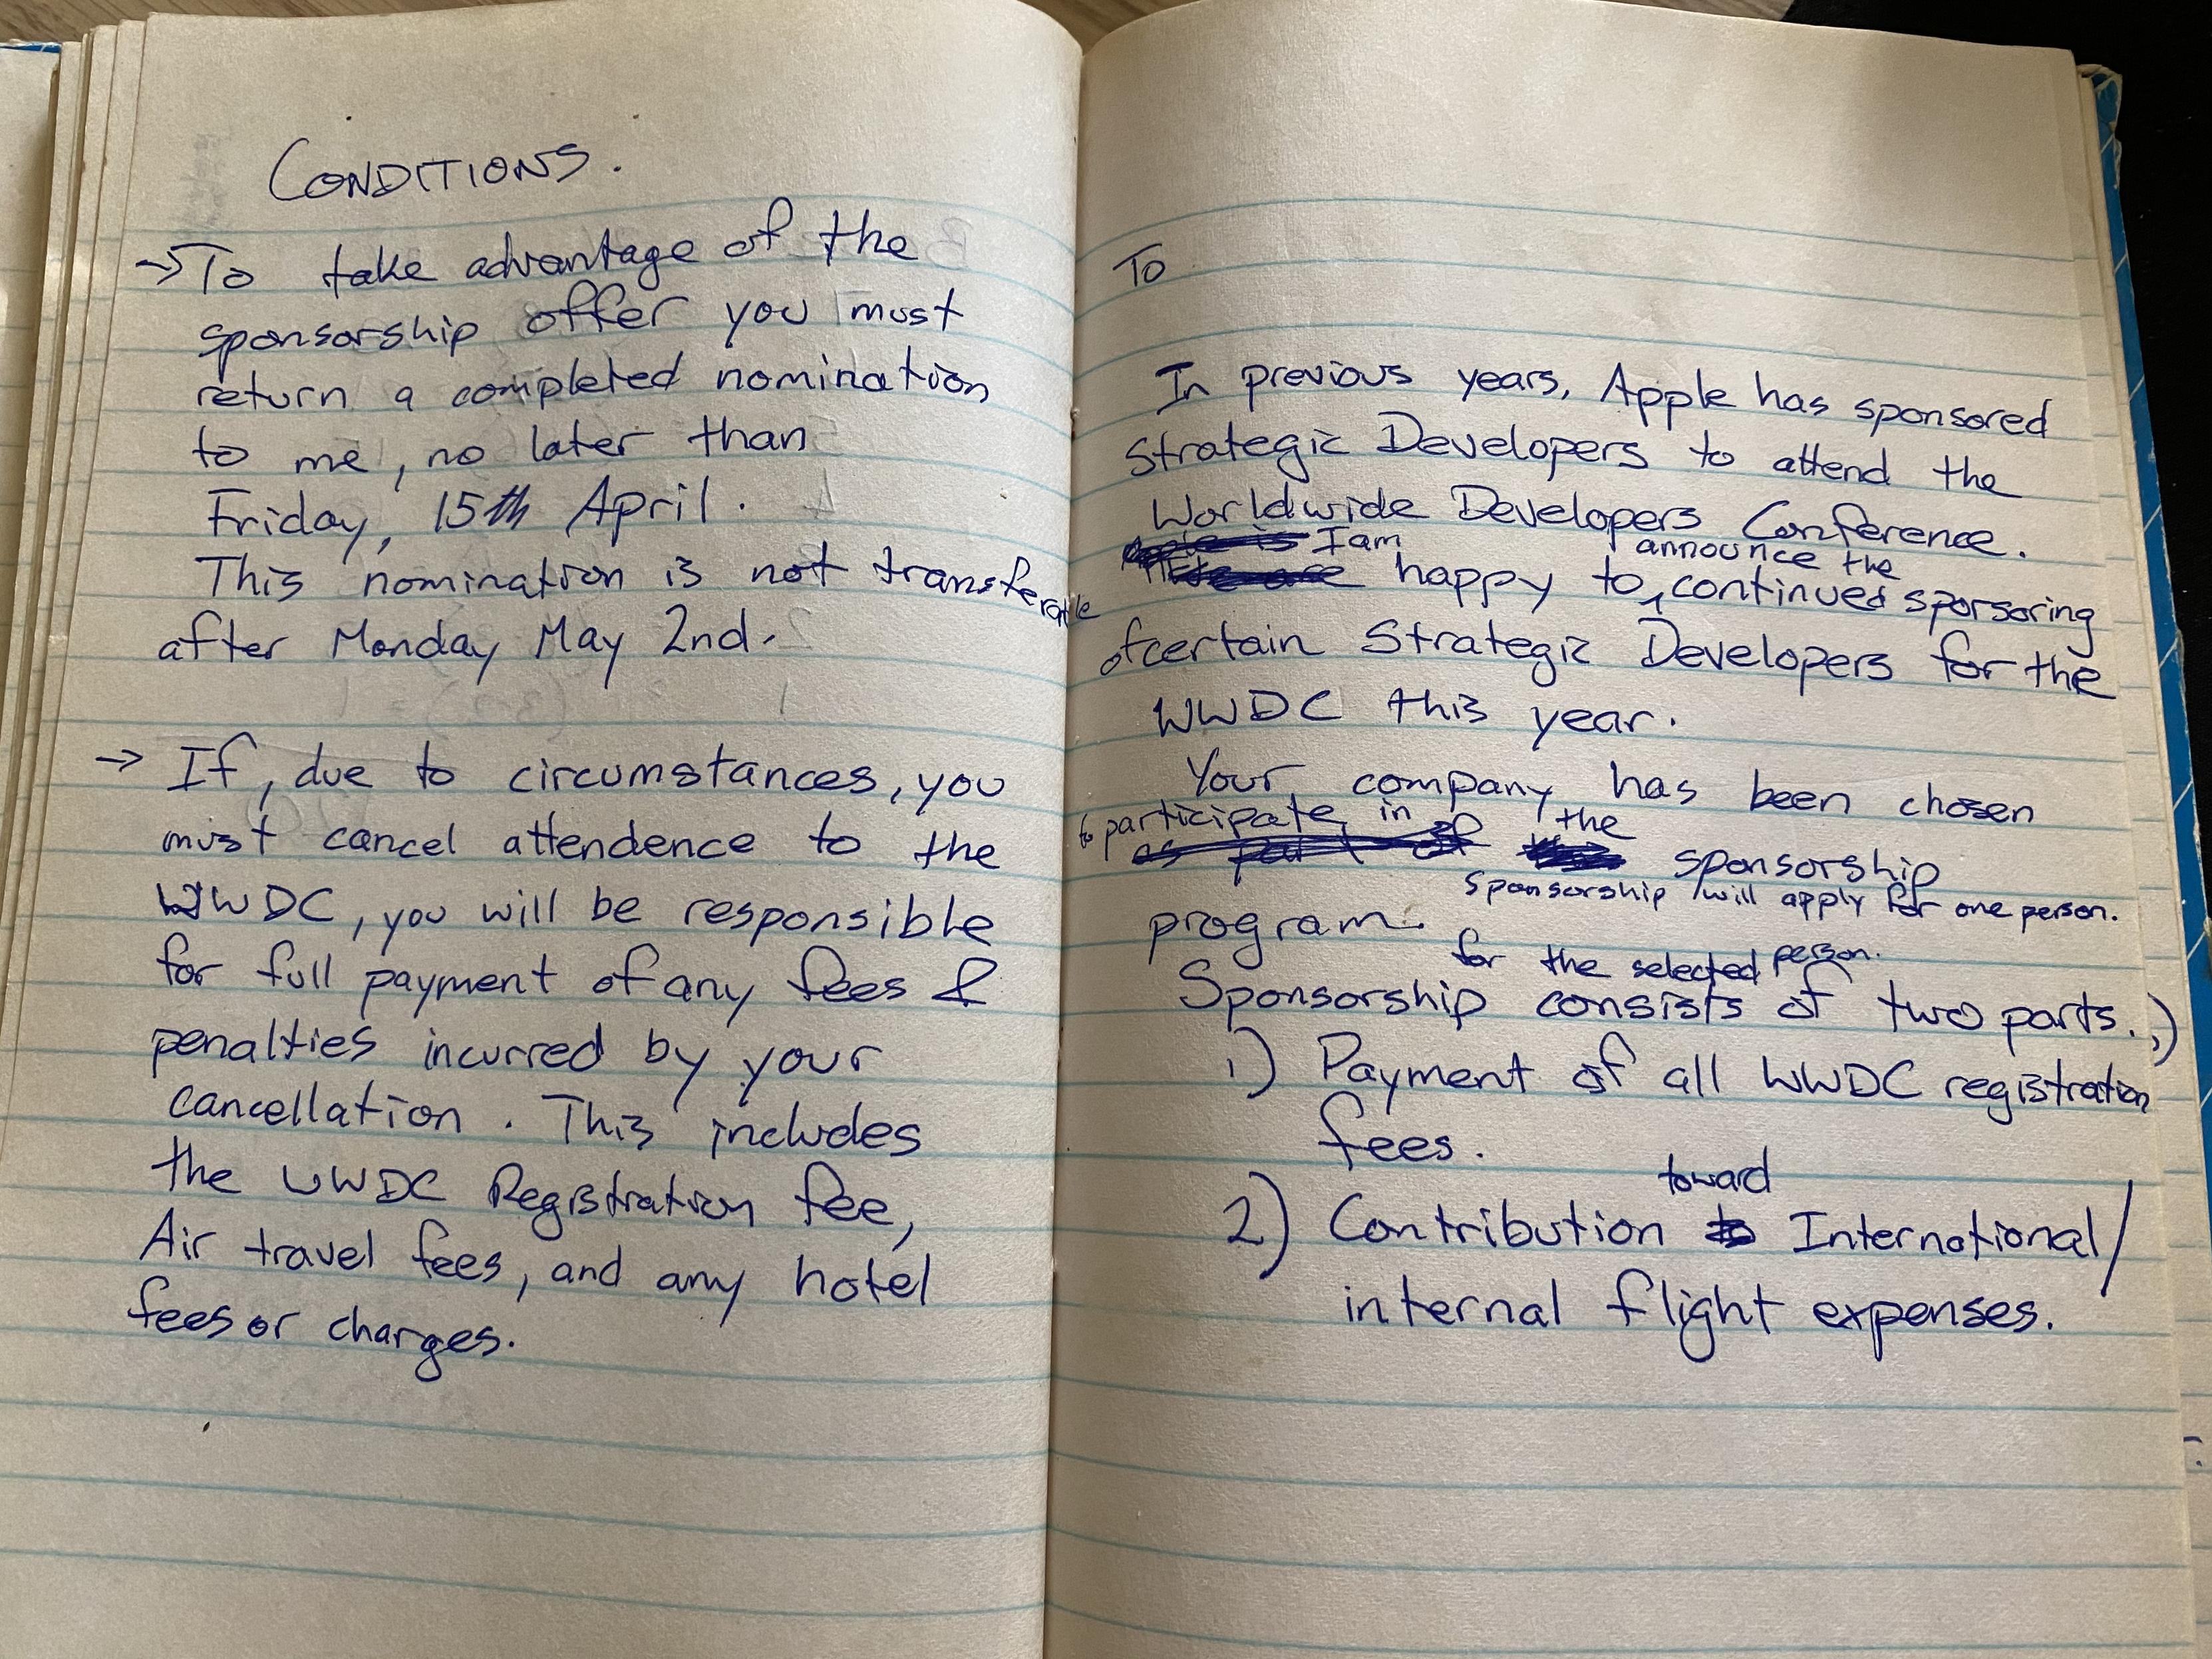 CONDITIONS.
→ To take advantage of the
sponsorship offer you must
return a completed nomination
to me, no later than
Friday, 15th April.
This nomination is not transferable
after Monday May 2nd.
→ If, due to circumstances, you
must cancel attendence to the
WWDC, you will be responsible
for full payment of any fees &
penalties incurred by your
cancellation. This includes
the WWDC Registration fee,
Air travel fees, and any hotel
fees or charges.
To
In previous years, Apple has sponsored
Strategic Developers to attend the
Worldwide Developers Conference.
I am announce the
happy to continued sponsoring
of certain Strategic Developers for the
WWDC this year.
Your company has been chosen
to participate in the
as part of sponsorship
Sponsorship will apply for one person.
program.
for the selected person.
Sponsorship consists of two parts.
1) Payment of all WWDC registration
fees.
toward
2) Contribution to International/
internal flight expenses.